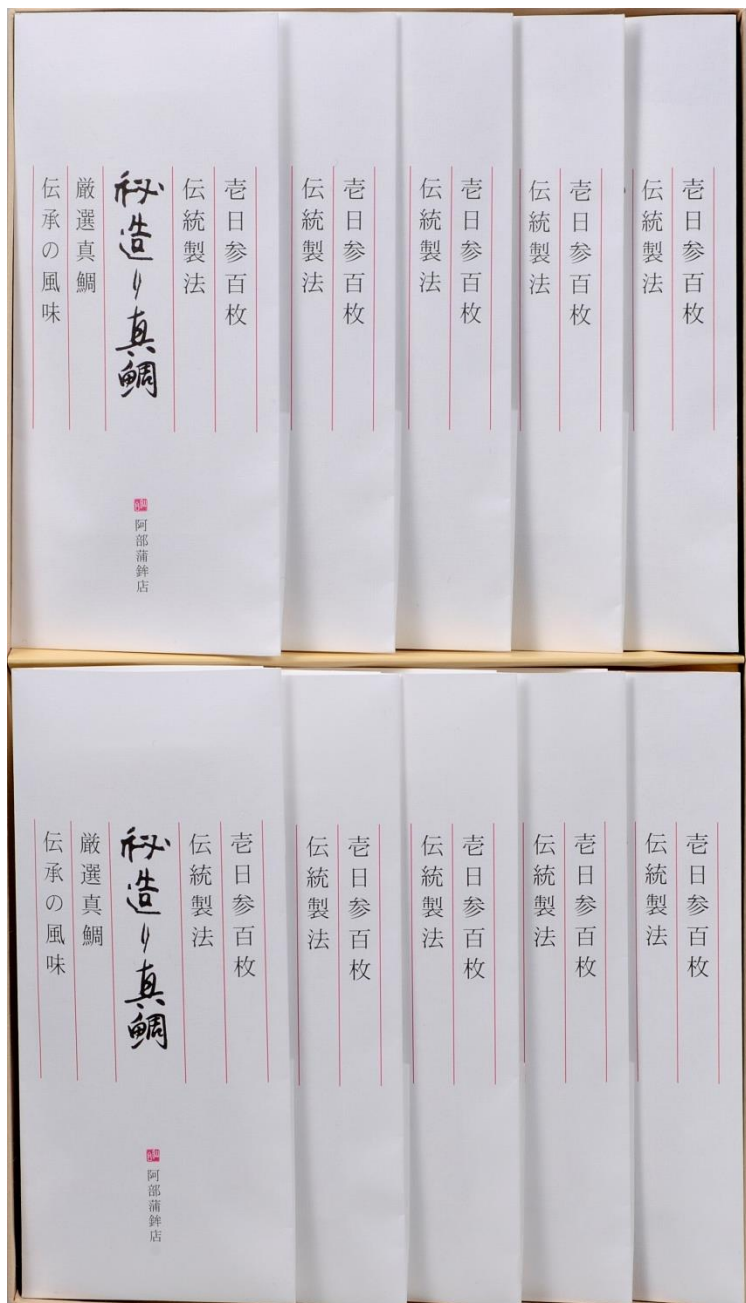 壱日参百枚
伝統製法
壱日参百枚
伝統製法
壱日参百枚
伝統製法
壱日参百枚
伝統製法
壱日参百枚
伝統製法
秘造り真鯛
厳選真鯛
伝承の風味
阿部蒲鉾店
壱日参百枚
伝統製法
壱日参百枚
伝統製法
壱日参百枚
伝統製法
壱日参百枚
伝統製法
壱日参百枚
伝統製法
秘造り真鯛
厳選真鯛
伝承の風味
阿部蒲鉾店